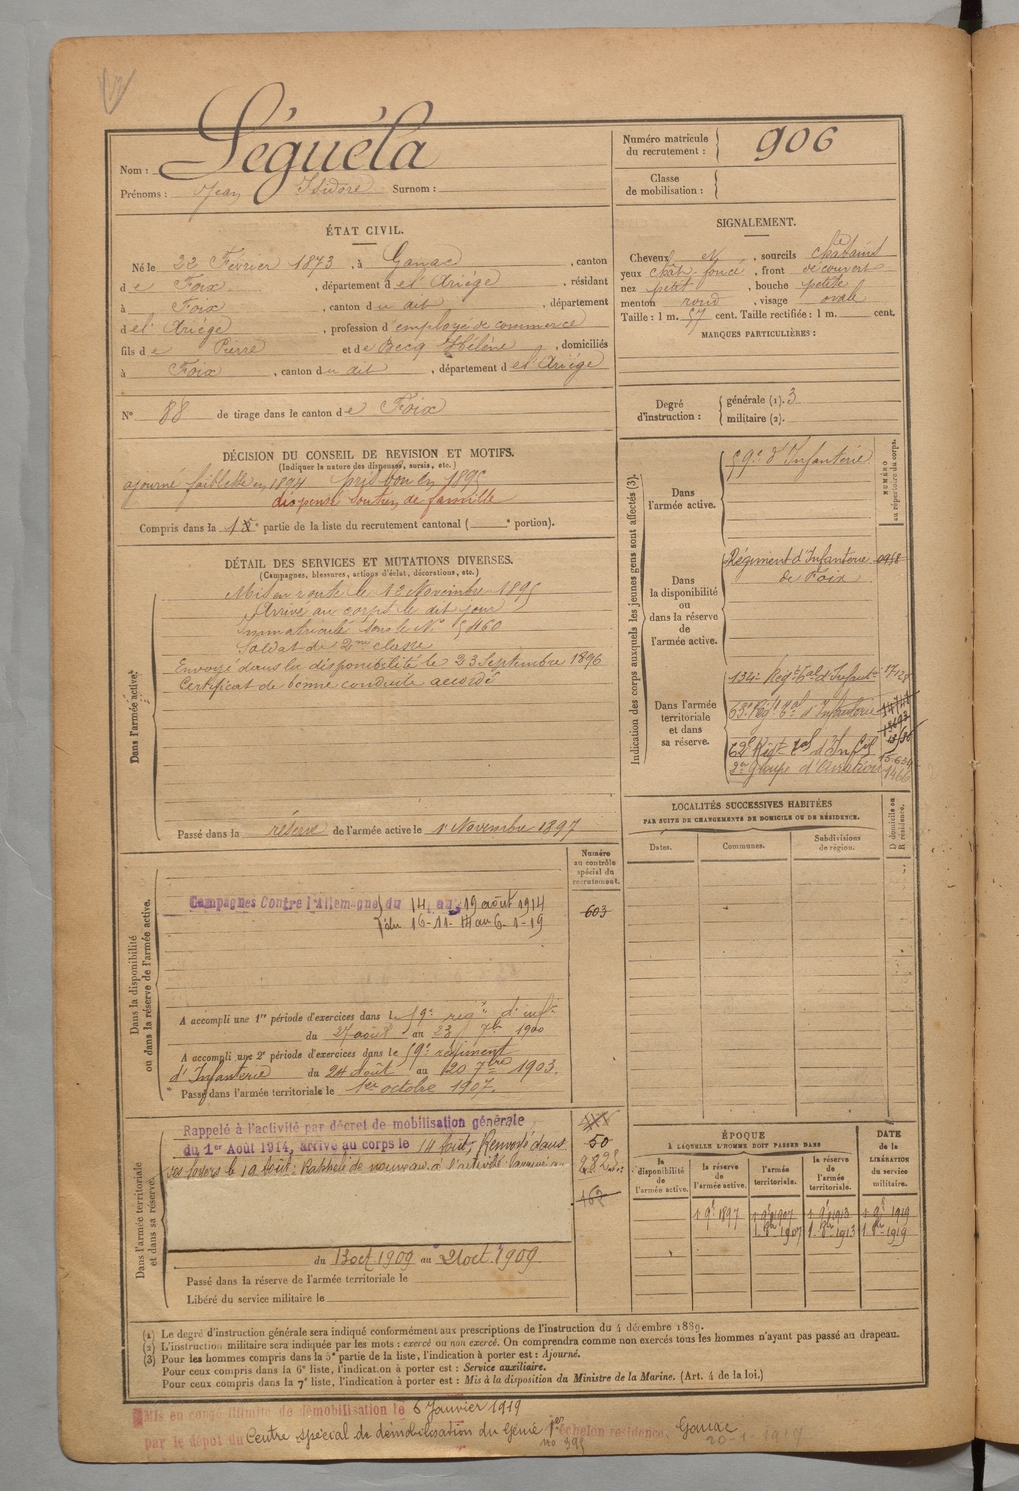 Nom : Séguéla
Prénoms : Jean Isidore Surnom :
Numéro matricule du recrutement : 906
Classe de mobilisation :
ÉTAT CIVIL.
Né le 22 Février 1873, à Ganac, canton
de Foix, département de l'Ariége, résidant
à Foix, canton du dit, département
de l'Ariége, profession d'employé de commerce
fils de Pierre et de Becq Hélène, domiciliés
à Foix, canton du dit, département de l'Ariége
N° 88 de tirage dans le canton de Foix
SIGNALEMENT.
Cheveux et, sourcils châtains
yeux chat. foncé, front découvert
nez petit, bouche petite
menton rond, visage ovale
Taille : 1 m. 57 cent. Taille rectifiée : 1 m. cent.
MARQUES PARTICULIÈRES :
Degré d'instruction : générale (1). 3
militaire (2).
DÉCISION DU CONSEIL DE REVISION ET MOTIFS.
(Indiquer la nature des dispenses, sursis, etc.)
ajourné faiblesse en 1894 pris bon en 1895
dispensé soutien de famille
Compris dans la 1e partie de la liste du recrutement cantonal ( e portion).
DÉTAIL DES SERVICES ET MUTATIONS DIVERSES.
(Campagnes, blessures, actions d'éclat, décorations, etc.)
Dans l'armée active.
Mis en route le 12 Novembre 1895
Arrivé au corps le dit jour
immatriculé sous le N° 5460
Soldat de 2me classe
Envoyé dans la disponibilité le 23 Septembre 1896
Certificat de bonne conduite accordé
Passé dans la réserve de l'armée active le 1er Novembre 1897
Indication des corps auxquels les jeunes gens sont affectés (3).
NUMÉRO au répertoire du corps.
Dans l'armée active.
59e d'Infanterie
Dans la disponibilité ou dans la réserve de l'armée active.
Régiment d'Infanterie de Foix
Dans l'armée territoriale et dans sa réserve.
134e Régt tal d'Infanterie
63e Régt tal d'Infanterie
62e Régt tal d'Infie
2e Groupe d'Aviation
LOCALITÉS SUCCESSIVES HABITÉES
PAR SUITE DE CHANGEMENTS DE DOMICILE OU DE RÉSIDENCE.
D domicile ou R résidence.
Dates. Communes. Subdivisions de région.
Numéro au contrôle spécial du recrutement.
Dans la disponibilité ou dans la réserve de l'armée active.
Campagnes Contre l'Allemagne du 14 au 19 août 1914
du 16-11-14 au 6-1-19
603
A accompli une 1re période d'exercices dans le 59e régt d'infie
du 27 août au 23 7bre 1900
A accompli une 2e période d'exercices dans le 59e régiment
d'Infanterie du 24 août au 20 7bre 1903.
Passé dans l'armée territoriale le 1er octobre 1907.
Dans l'armée territoriale et dans sa réserve.
Rappelé à l'activité par décret de mobilisation générale
du 1er Août 1914, arrivé au corps le 14 Août, Renvoyé dans
ses foyers le 19 Août. Rappelé de nouveau à l'activité
50
162
du 13 oct 1909 au 21 oct. 1909.
Passé dans la réserve de l'armée territoriale le
Libéré du service militaire le
ÉPOQUE
À LAQUELLE L'HOMME DOIT PASSER DANS
la disponibilité de l'armée active. la réserve de l'armée active. l'armée territoriale. la réserve de l'armée territoriale.
DATE de la LIBÉRATION du service militaire.
(1) Le degré d'instruction générale sera indiqué conformément aux prescriptions de l'instruction du 4 décembre 1889.
(2) L'instruction militaire sera indiquée par les mots : exercé ou non exercé. On comprendra comme non exercés tous les hommes n'ayant pas passé au drapeau.
(3) Pour les hommes compris dans la 5e partie de la liste, l'indication à porter est : Ajourné.
Pour ceux compris dans la 6e liste, l'indication à porter est : Service auxiliaire.
Pour ceux compris dans la 7e liste, l'indication à porter est : Mis à la disposition du Ministre de la Marine. (Art. 4 de la loi.)
Mis en congé illimité de démobilisation le 6 Janvier 1919
par le dépôt du Centre spécial de démobilisation du Génie 1er échelon résidence. Ganac
no 395 20-1-1919